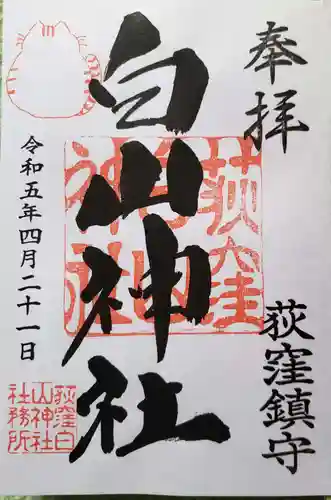 奉拝
荻窪鎮守
白山神社
荻窪白山神社
令和五年四月二十一日
荻窪白
山神社
社務所